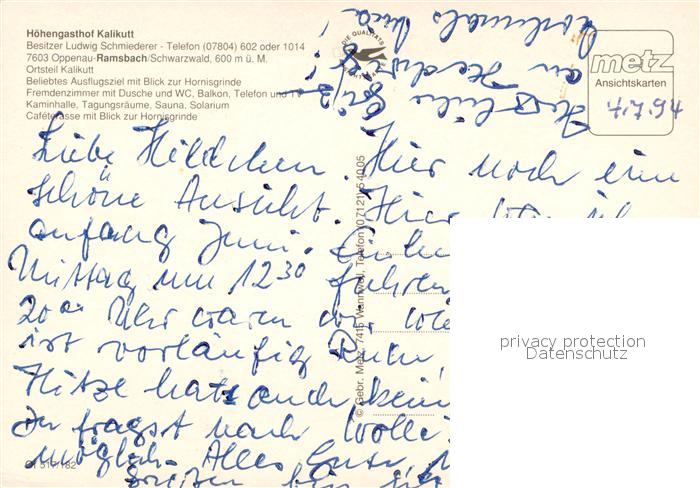 Höhengasthof Kalikutt
Besitzer Ludwig Schmiederer - Telefon (07804) 602 oder 1014
7603 Oppenau-Ramsbach/Schwarzwald, 600 m ü. M.
Ortsteil Kalikutt
Beliebtes Ausflugsziel mit Blick zur Hornisgrinde
Fremdenzimmer mit Dusche und WC, Balkon, Telefon und TV
Kaminhalle, Tagungsräume, Sauna, Solarium
Caféterasse mit Blick zur Hornisgrinde
metz
Ansichtskarten
4.7.94
Liebe Hildchen. Hier noch eine
schöne Ansicht. Hier
anfang Juni.
Mittag um 12 30 fuhren
20 Uhr waren wir
ist vorläufig Ruhe,
Hitze hat auch kein
Du fragst nach
möglich. Alles Gute
Herzliche Grüße
an
nochmals
© Gebr. Metz, 7415 Wannweil, Telefon (07121) 54005
privacy protection
Datenschutz